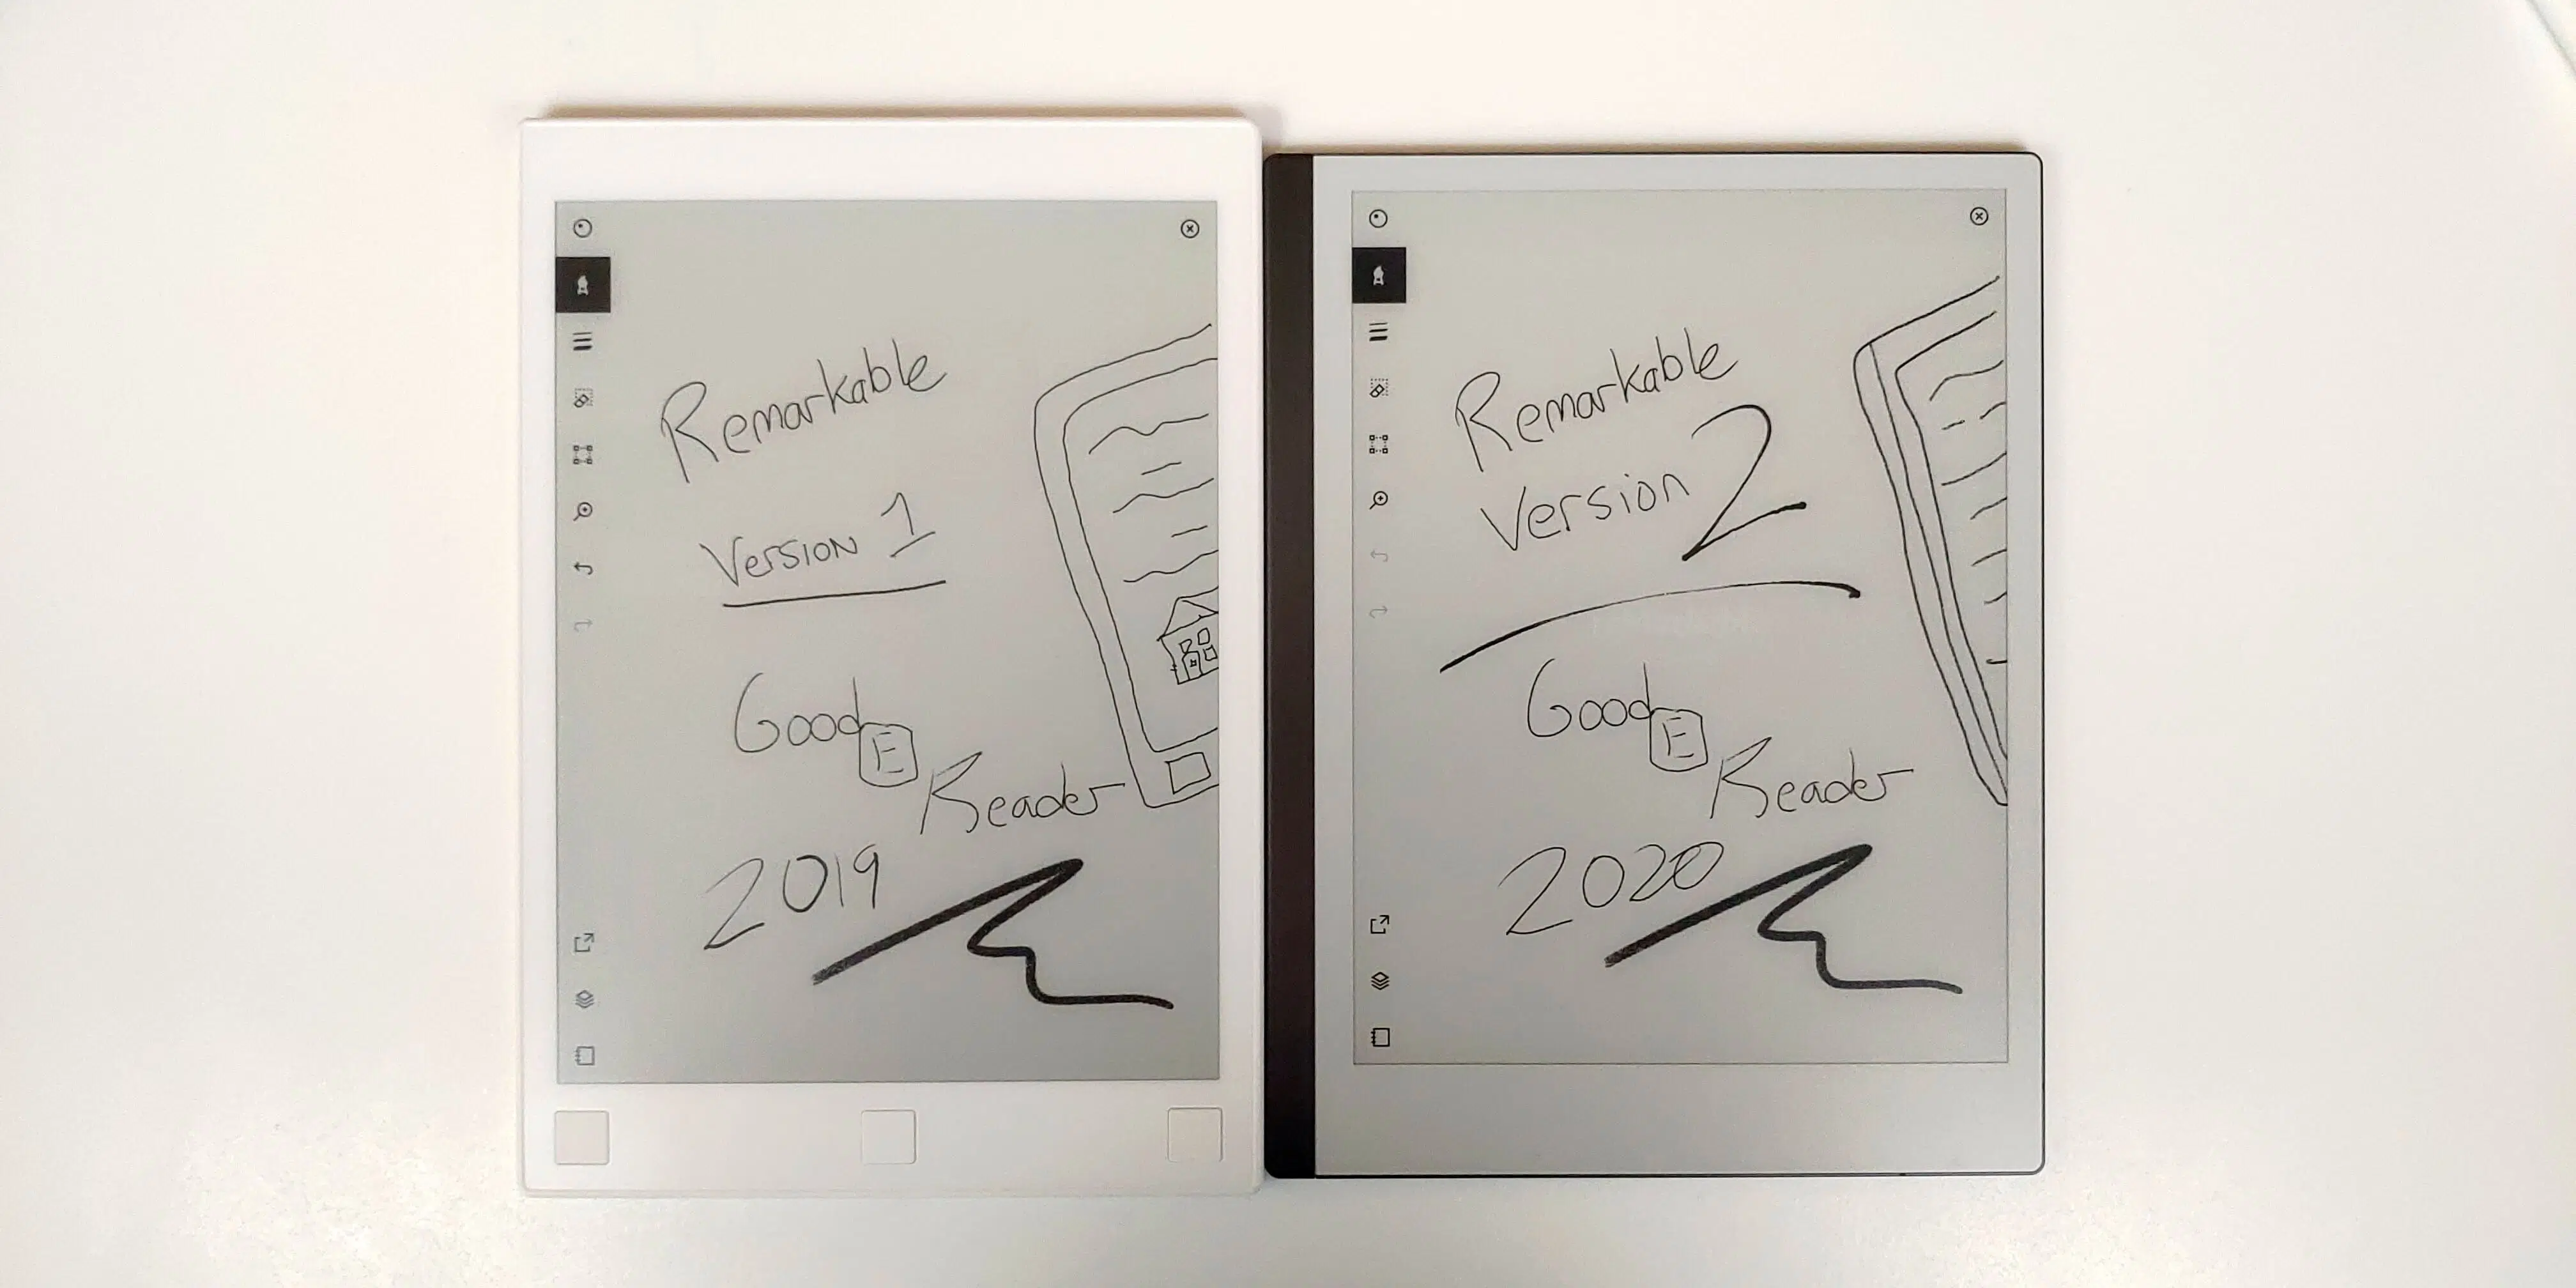 Remarkable
Version 1
Good
E
Reader
2019
Remarkable
Version 2
Good
E
Reader
2020